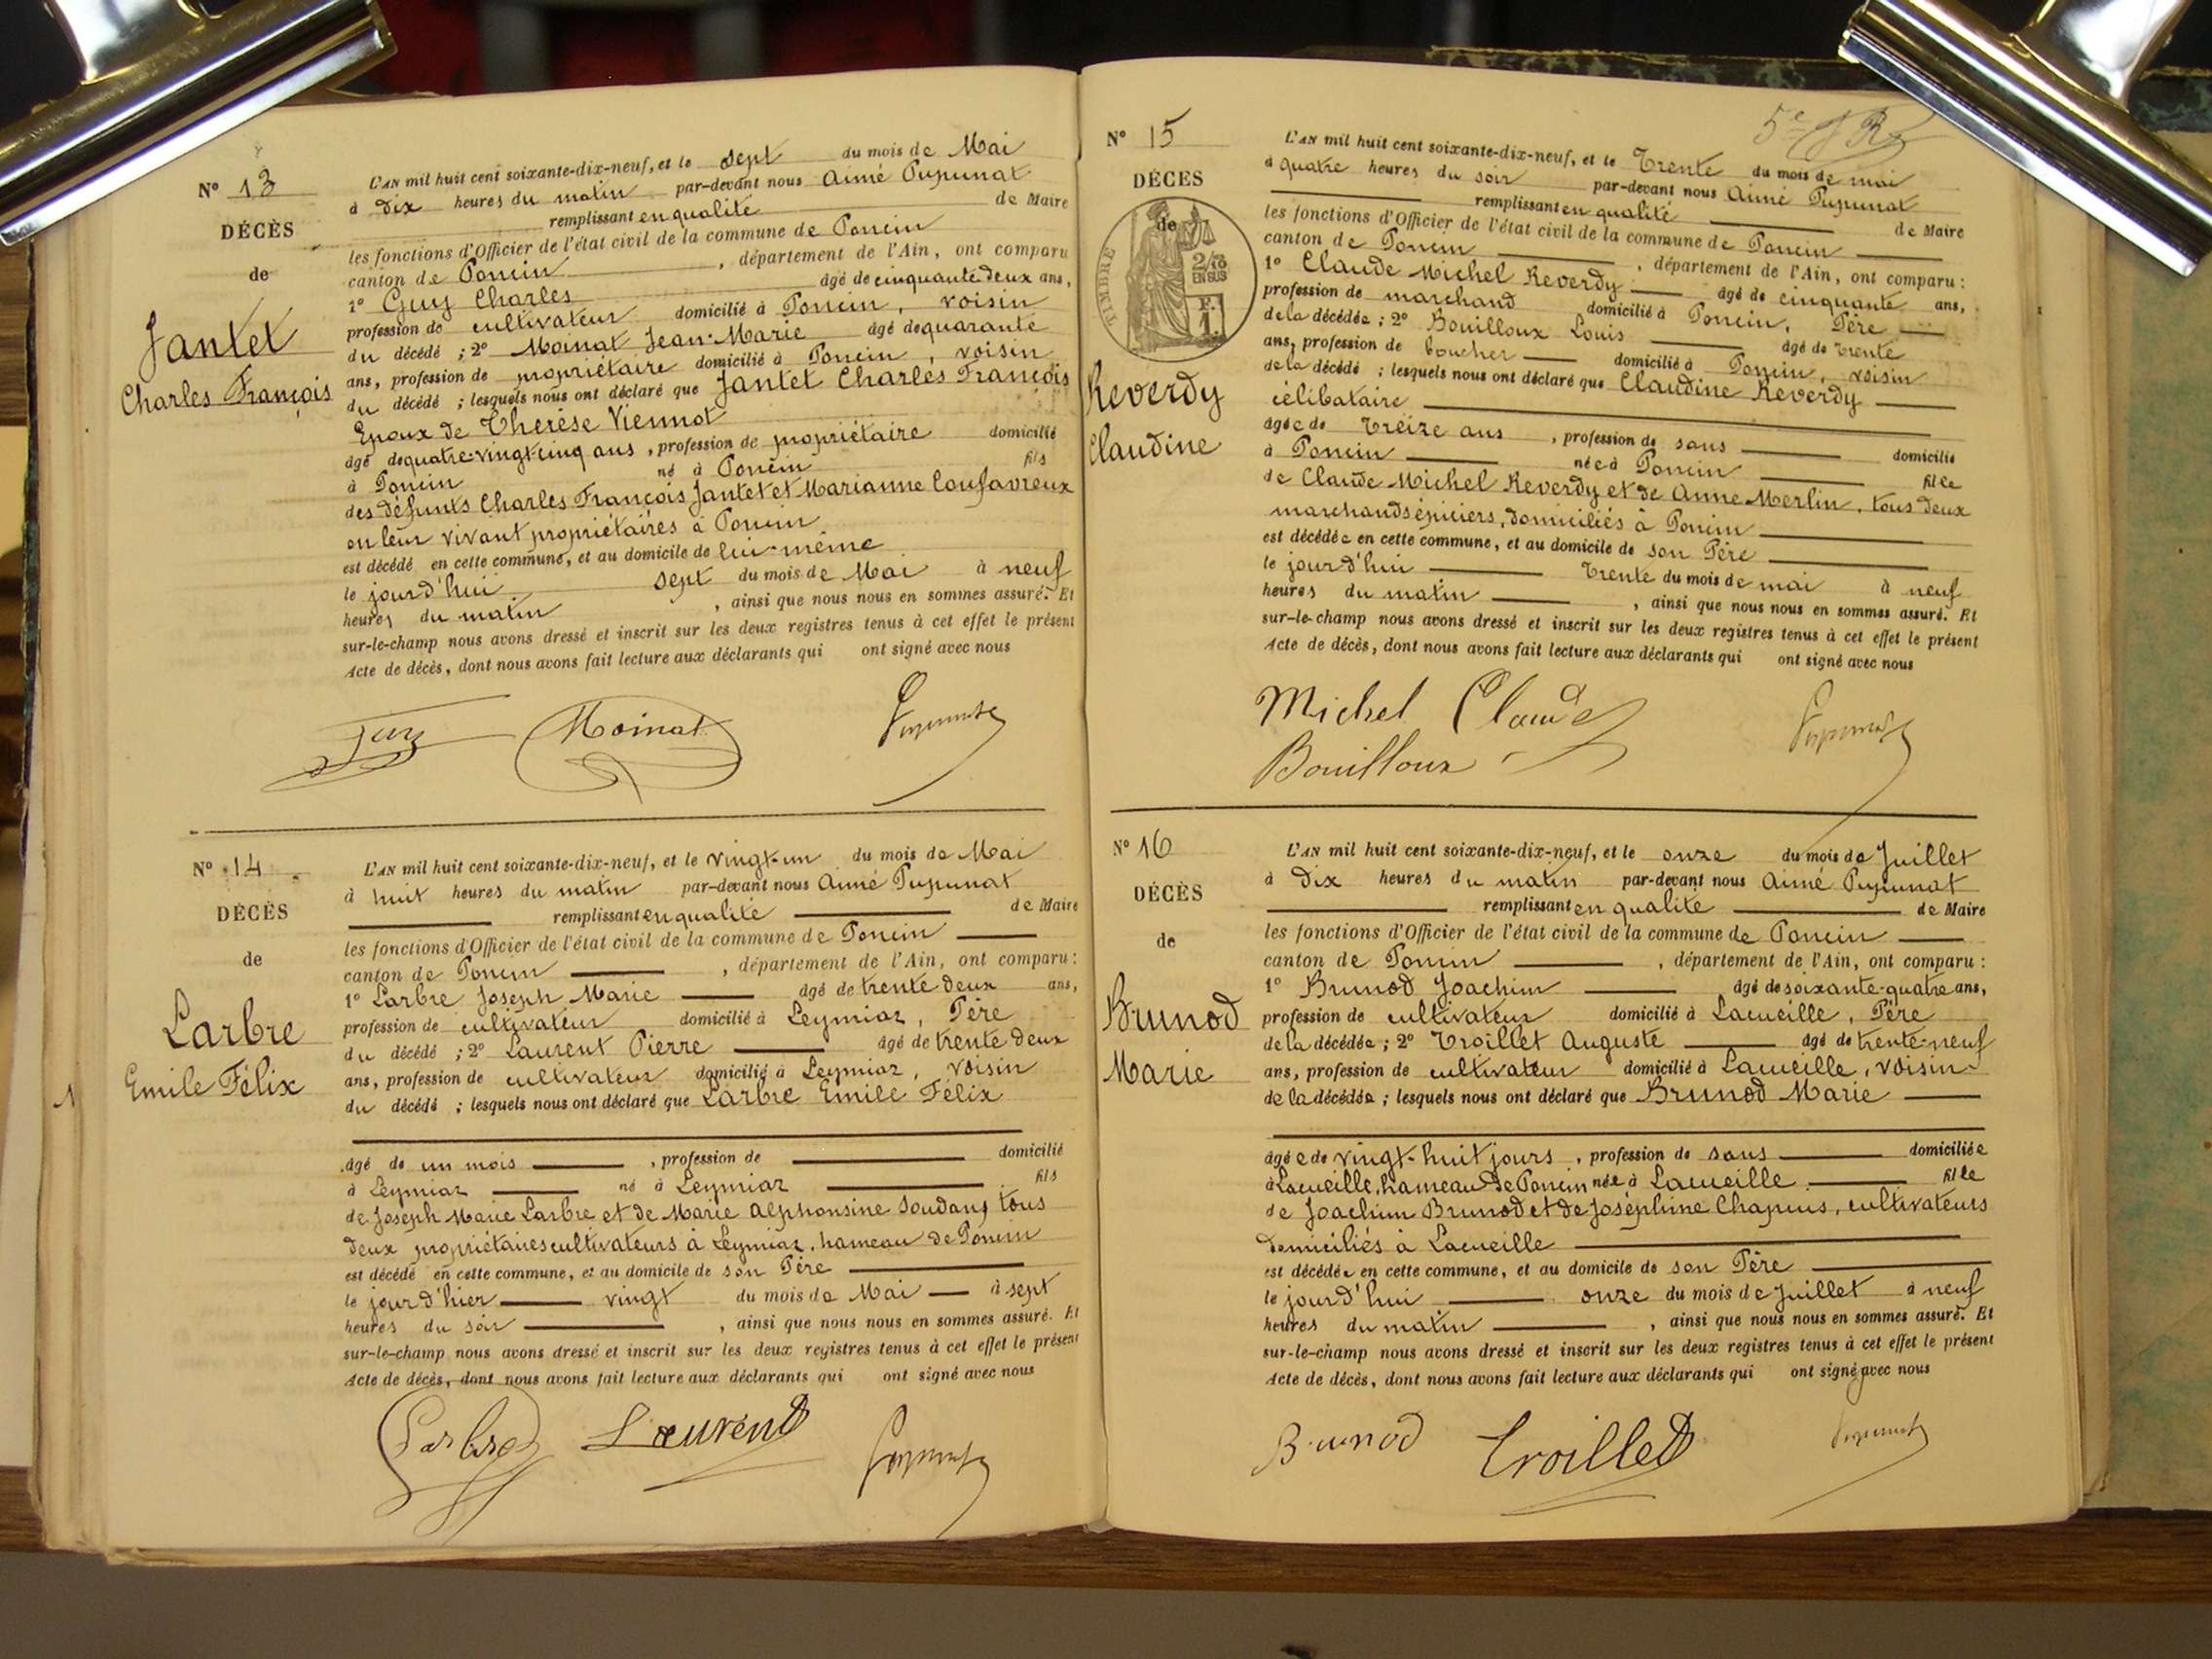 N° 13
DÉCÈS
de
Jantet
Charles François
L'AN mil huit cent soixante-dix-neuf, et le sept du mois de Mai
à dix heures du matin par-devant nous Aimé Pupunat
remplissant en qualité de Maire
les fonctions d'Officier de l'état civil de la commune de Poncin
canton de Poncin, département de l'Ain, ont comparu
1° Guy Charles âgé de cinquante deux ans,
profession de cultivateur domicilié à Poncin, voisin
du décédé ; 2° Moinat Jean-Marie âgé de quarante
ans, profession de propriétaire domicilié à Poncin, voisin
du décédé ; lesquels nous ont déclaré que Jantet Charles François
Epoux de Therèse Viennot
âgé de quatre-vingt cinq ans, profession de propriétaire domicilié
à Poncin né à Poncin fils
des défunts Charles François Jantet et Marianne Coufavreux
en leur vivant propriétaires à Poncin
est décédé en cette commune, et au domicile de lui-même
le jourd'hui sept du mois de Mai à neuf
heures du matin, ainsi que nous nous en sommes assuré. Et
sur-le-champ nous avons dressé et inscrit sur les deux registres tenus à cet effet le présent
Acte de décès, dont nous avons fait lecture aux déclarants qui ont signé avec nous
Guy Moinat Pupunat
N° 14
DÉCÈS
de
Larbre
Emile Félix
L'AN mil huit cent soixante-dix-neuf, et le vingt-un du mois de Mai
à huit heures du matin par-devant nous Aimé Pupunat
remplissant en qualité de Maire
les fonctions d'Officier de l'état civil de la commune de Poncin
canton de Poncin, département de l'Ain, ont comparu :
1° Larbre Joseph Marie âgé de trente deux ans,
profession de cultivateur domicilié à Leymiaz, Père
du décédé ; 2° Laurent Pierre âgé de trente deux
ans, profession de cultivateur domicilié à Leymiaz, voisin
du décédé ; lesquels nous ont déclaré que Larbre Emile Félix
âgé de un mois, profession de domicilié
à Leymiaz né à Leymiaz fils
de Joseph Marie Larbre et de Marie Alphonsine Soudan, tous
deux propriétaires cultivateurs à Leymiaz, hameau de Poncin
est décédé en cette commune, et au domicile de son Père
le jour d'hier vingt du mois de Mai à sept
heures du soir, ainsi que nous nous en sommes assuré. Et
sur-le-champ nous avons dressé et inscrit sur les deux registres tenus à cet effet le présent
Acte de décès, dont nous avons fait lecture aux déclarants qui ont signé avec nous
Larbre Laurent Pupunat
5e
N° 15
DÉCÈS
de
TIMBRE
2/10
EN SUS
F.
1.
Reverdy
Claudine
L'AN mil huit cent soixante-dix-neuf, et le Trente du mois de mai
à quatre heures du soir par-devant nous Aimé Pupunat
remplissant en qualité de Maire
les fonctions d'Officier de l'état civil de la commune de Poncin
canton de Poncin, département de l'Ain, ont comparu :
1° Claude Michel Reverdy âgé de cinquante ans,
profession de marchand domicilié à Poncin, Père
de la décédée ; 2° Bouilloux Louis âgé de trente
ans, profession de boucher domicilié à Poncin, voisin
de la décédé ; lesquels nous ont déclaré que Claudine Reverdy
célibataire
âgée de Treize ans, profession de sans domicilié
à Poncin née à Poncin fille
de Claude Michel Reverdy et de Anne Merlin, tous deux
marchands épiciers, domiciliés à Poncin
est décédée en cette commune, et au domicile de son Père
le jourd'hui Trente du mois de mai à neuf
heures du matin, ainsi que nous nous en sommes assuré. Et
sur-le-champ nous avons dressé et inscrit sur les deux registres tenus à cet effet le présent
Acte de décès, dont nous avons fait lecture aux déclarants qui ont signé avec nous
Michel Claude
Bouilloux Pupunat
N° 16
DÉCÈS
de
Brunod
Marie
L'AN mil huit cent soixante-dix-neuf, et le onze du mois de Juillet
à dix heures du matin par-devant nous Aimé Pupunat
remplissant en qualité de Maire
les fonctions d'Officier de l'état civil de la commune de Poncin
canton de Poncin, département de l'Ain, ont comparu :
1° Brunod Joachim âgé de soixante-quatre ans,
profession de cultivateur domicilié à Lacueille, Père
de la décédée ; 2° Troillet Auguste âgé de trente-neuf
ans, profession de cultivateur domicilié à Lacueille, voisin
de la décédée ; lesquels nous ont déclaré que Brunod Marie
âgée de vingt-huit jours, profession de sans domiciliée
à Lacueille, hameau de Poncin née à Lacueille fille
de Joachim Brunod et de Joséphine Chapuis, cultivateurs
domiciliés à Lacueille
est décédée en cette commune, et au domicile de son Père
le jourd'hui onze du mois de Juillet à neuf
heures du matin, ainsi que nous nous en sommes assuré. Et
sur-le-champ nous avons dressé et inscrit sur les deux registres tenus à cet effet le présent
Acte de décès, dont nous avons fait lecture aux déclarants qui ont signé avec nous
Brunod Troillet Pupunat